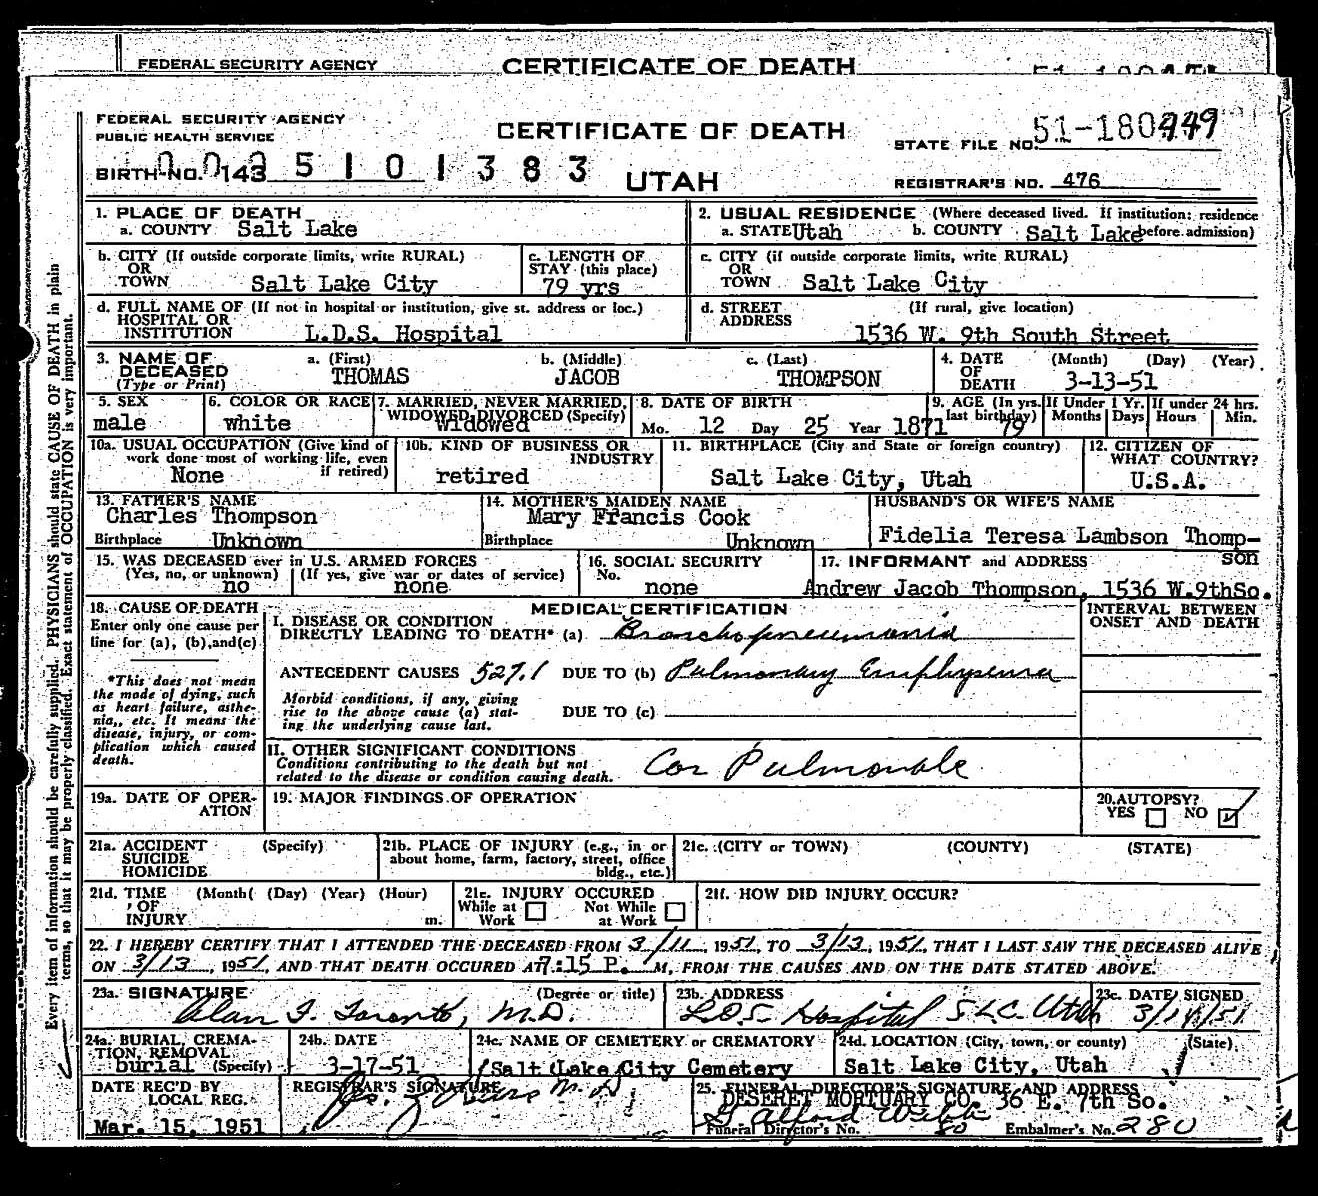 FEDERAL SECURITY AGENCY CERTIFICATE OF DEATH
FEDERAL SECURITY AGENCY
PUBLIC HEALTH SERVICE
CERTIFICATE OF DEATH
STATE FILE NO. 51-180449
BIRTH NO. 143 5 1 0 1 3 8 3 UTAH REGISTRAR'S NO. 476
1. PLACE OF DEATH
a. COUNTY Salt Lake
2. USUAL RESIDENCE (Where deceased lived. If institution: residence before admission)
a. STATE Utah b. COUNTY Salt Lake
b. CITY (If outside corporate limits, write RURAL)
OR
TOWN Salt Lake City
c. LENGTH OF
STAY (this place)
79 yrs
c. CITY (if outside corporate limits, write RURAL)
OR
TOWN Salt Lake City
d. FULL NAME OF (If not in hospital or institution, give st. address or loc.)
HOSPITAL OR
INSTITUTION L.D.S. Hospital
d. STREET (If rural, give location)
ADDRESS 1536 W. 9th South Street
3. NAME OF
DECEASED
(Type or Print)
a. (First) THOMAS
b. (Middle) JACOB
c. (Last) THOMPSON
4. DATE (Month) (Day) (Year)
OF
DEATH 3-13-51
5. SEX
male
6. COLOR OR RACE
white
7. MARRIED, NEVER MARRIED,
WIDOWED, DIVORCED (Specify)
widowed
8. DATE OF BIRTH
Mo. 12 Day 25 Year 1871
9. AGE (In yrs.
last birthday)
79
If Under 1 Yr.
Months Days
If under 24 hrs.
Hours Min.
10a. USUAL OCCUPATION (Give kind of
work done most of working life, even
if retired)
None
10b. KIND OF BUSINESS OR
INDUSTRY
retired
11. BIRTHPLACE (City and State or foreign country)
Salt Lake City, Utah
12. CITIZEN OF
WHAT COUNTRY?
U.S.A.
13. FATHER'S NAME
Charles Thompson
Birthplace Unknown
14. MOTHER'S MAIDEN NAME
Mary Francis Cook
Birthplace Unknown
HUSBAND'S OR WIFE'S NAME
Fidelia Teresa Lambson Thomp-
son
15. WAS DECEASED ever in U.S. ARMED FORCES
(Yes, no, or unknown) (If yes, give war or dates of service)
no none
16. SOCIAL SECURITY
No. none
17. INFORMANT and ADDRESS
Andrew Jacob Thompson, 1536 W.9thSo.
18. CAUSE OF DEATH
Enter only one cause per
line for (a), (b),and(c)
*This does not mean
the mode of dying, such
as heart failure, asthe-
nia,, etc. It means the
disease, injury, or com-
plication which caused
death.
MEDICAL CERTIFICATION
INTERVAL BETWEEN
ONSET AND DEATH
I. DISEASE OR CONDITION
DIRECTLY LEADING TO DEATH* (a) Bronchopneumonia
ANTECEDENT CAUSES 527.1 DUE TO (b) Pulmonary Emphysema
Morbid conditions, if any, giving
rise to the above cause (a) stat-
ing the underlying cause last.
DUE TO (c)
II. OTHER SIGNIFICANT CONDITIONS
Conditions contributing to the death but not
related to the disease or condition causing death.
Cor Pulmonale
19a. DATE OF OPER-
ATION
19. MAJOR FINDINGS OF OPERATION
20. AUTOPSY?
YES NO
21a. ACCIDENT (Specify)
SUICIDE
HOMICIDE
21b. PLACE OF INJURY (e.g., in or
about home, farm, factory, street, office
bldg., etc.)
21c. (CITY or TOWN) (COUNTY) (STATE)
21d. TIME (Month( (Day) (Year) (Hour)
OF
INJURY m.
21e. INJURY OCCURED
While at Not While
Work at Work
21f. HOW DID INJURY OCCUR?
22. I HEREBY CERTIFY THAT I ATTENDED THE DECEASED FROM 3/11, 1951, TO 3/13, 1951, THAT I LAST SAW THE DECEASED ALIVE
ON 3/13, 1951, AND THAT DEATH OCCURED AT 7:15 P. M, FROM THE CAUSES AND ON THE DATE STATED ABOVE.
23a. SIGNATURE (Degree or title)
Alan F. Toronto, M.D.
23b. ADDRESS
LDS Hospital SLC. Utah
23c. DATE SIGNED
3/14/51
24a. BURIAL, CREMA-
TION, REMOVAL
burial (Specify)
24b. DATE
3-17-51
24c. NAME OF CEMETERY or CREMATORY
Salt Lake City Cemetery
24d. LOCATION (City, town, or county) (State)
Salt Lake City, Utah
DATE REC'D BY
LOCAL REG.
Mar. 15, 1951
REGISTRAR'S SIGNATURE
M.D.
25. FUNERAL DIRECTOR'S SIGNATURE AND ADDRESS
DESERET MORTUARY CO. 36 E. 7th So.
G Alford Webb
Funeral Director's No. 80 Embalmer's No. 280
Every item of information should be carefully supplied. PHYSICIANS should state CAUSE OF DEATH in plain
terms, so that it may be properly classified. Exact statement of OCCUPATION is very important.